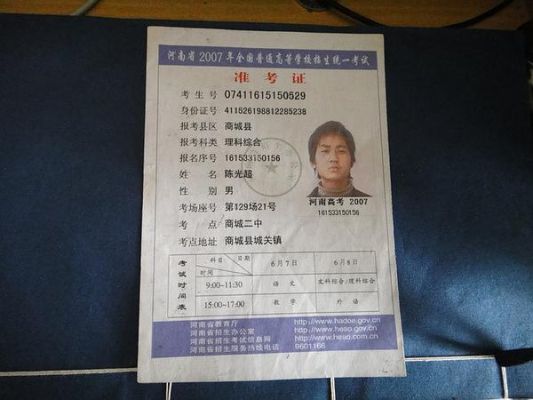 河南省 2007 年全国普通高等学校招生统一考试
准 考 证
考 生 号 07411615150529
身份证号 411526198812285238
报考县区 商城县
报考科类 理科综合
报名序号 161533150156
姓 名 陈光超
性 别 男
考场座号 第129场21号
考 点 商城二中
考点地址 商城县城关镇
河南高考 2007
161533150156
考试时间表
科目 日期 时间 6月7日 6月8日
9:00-11:30 语文 文科综合/理科综合
15:00-17:00 数学 外语
河南省教育厅 http://www.hadoe.gov.cn
河南省招生办公室 http://www.heao.gov.cn
河南省招生考试信息网 http://www.heao.com.cn
河南省招生服务热线电话 9601166